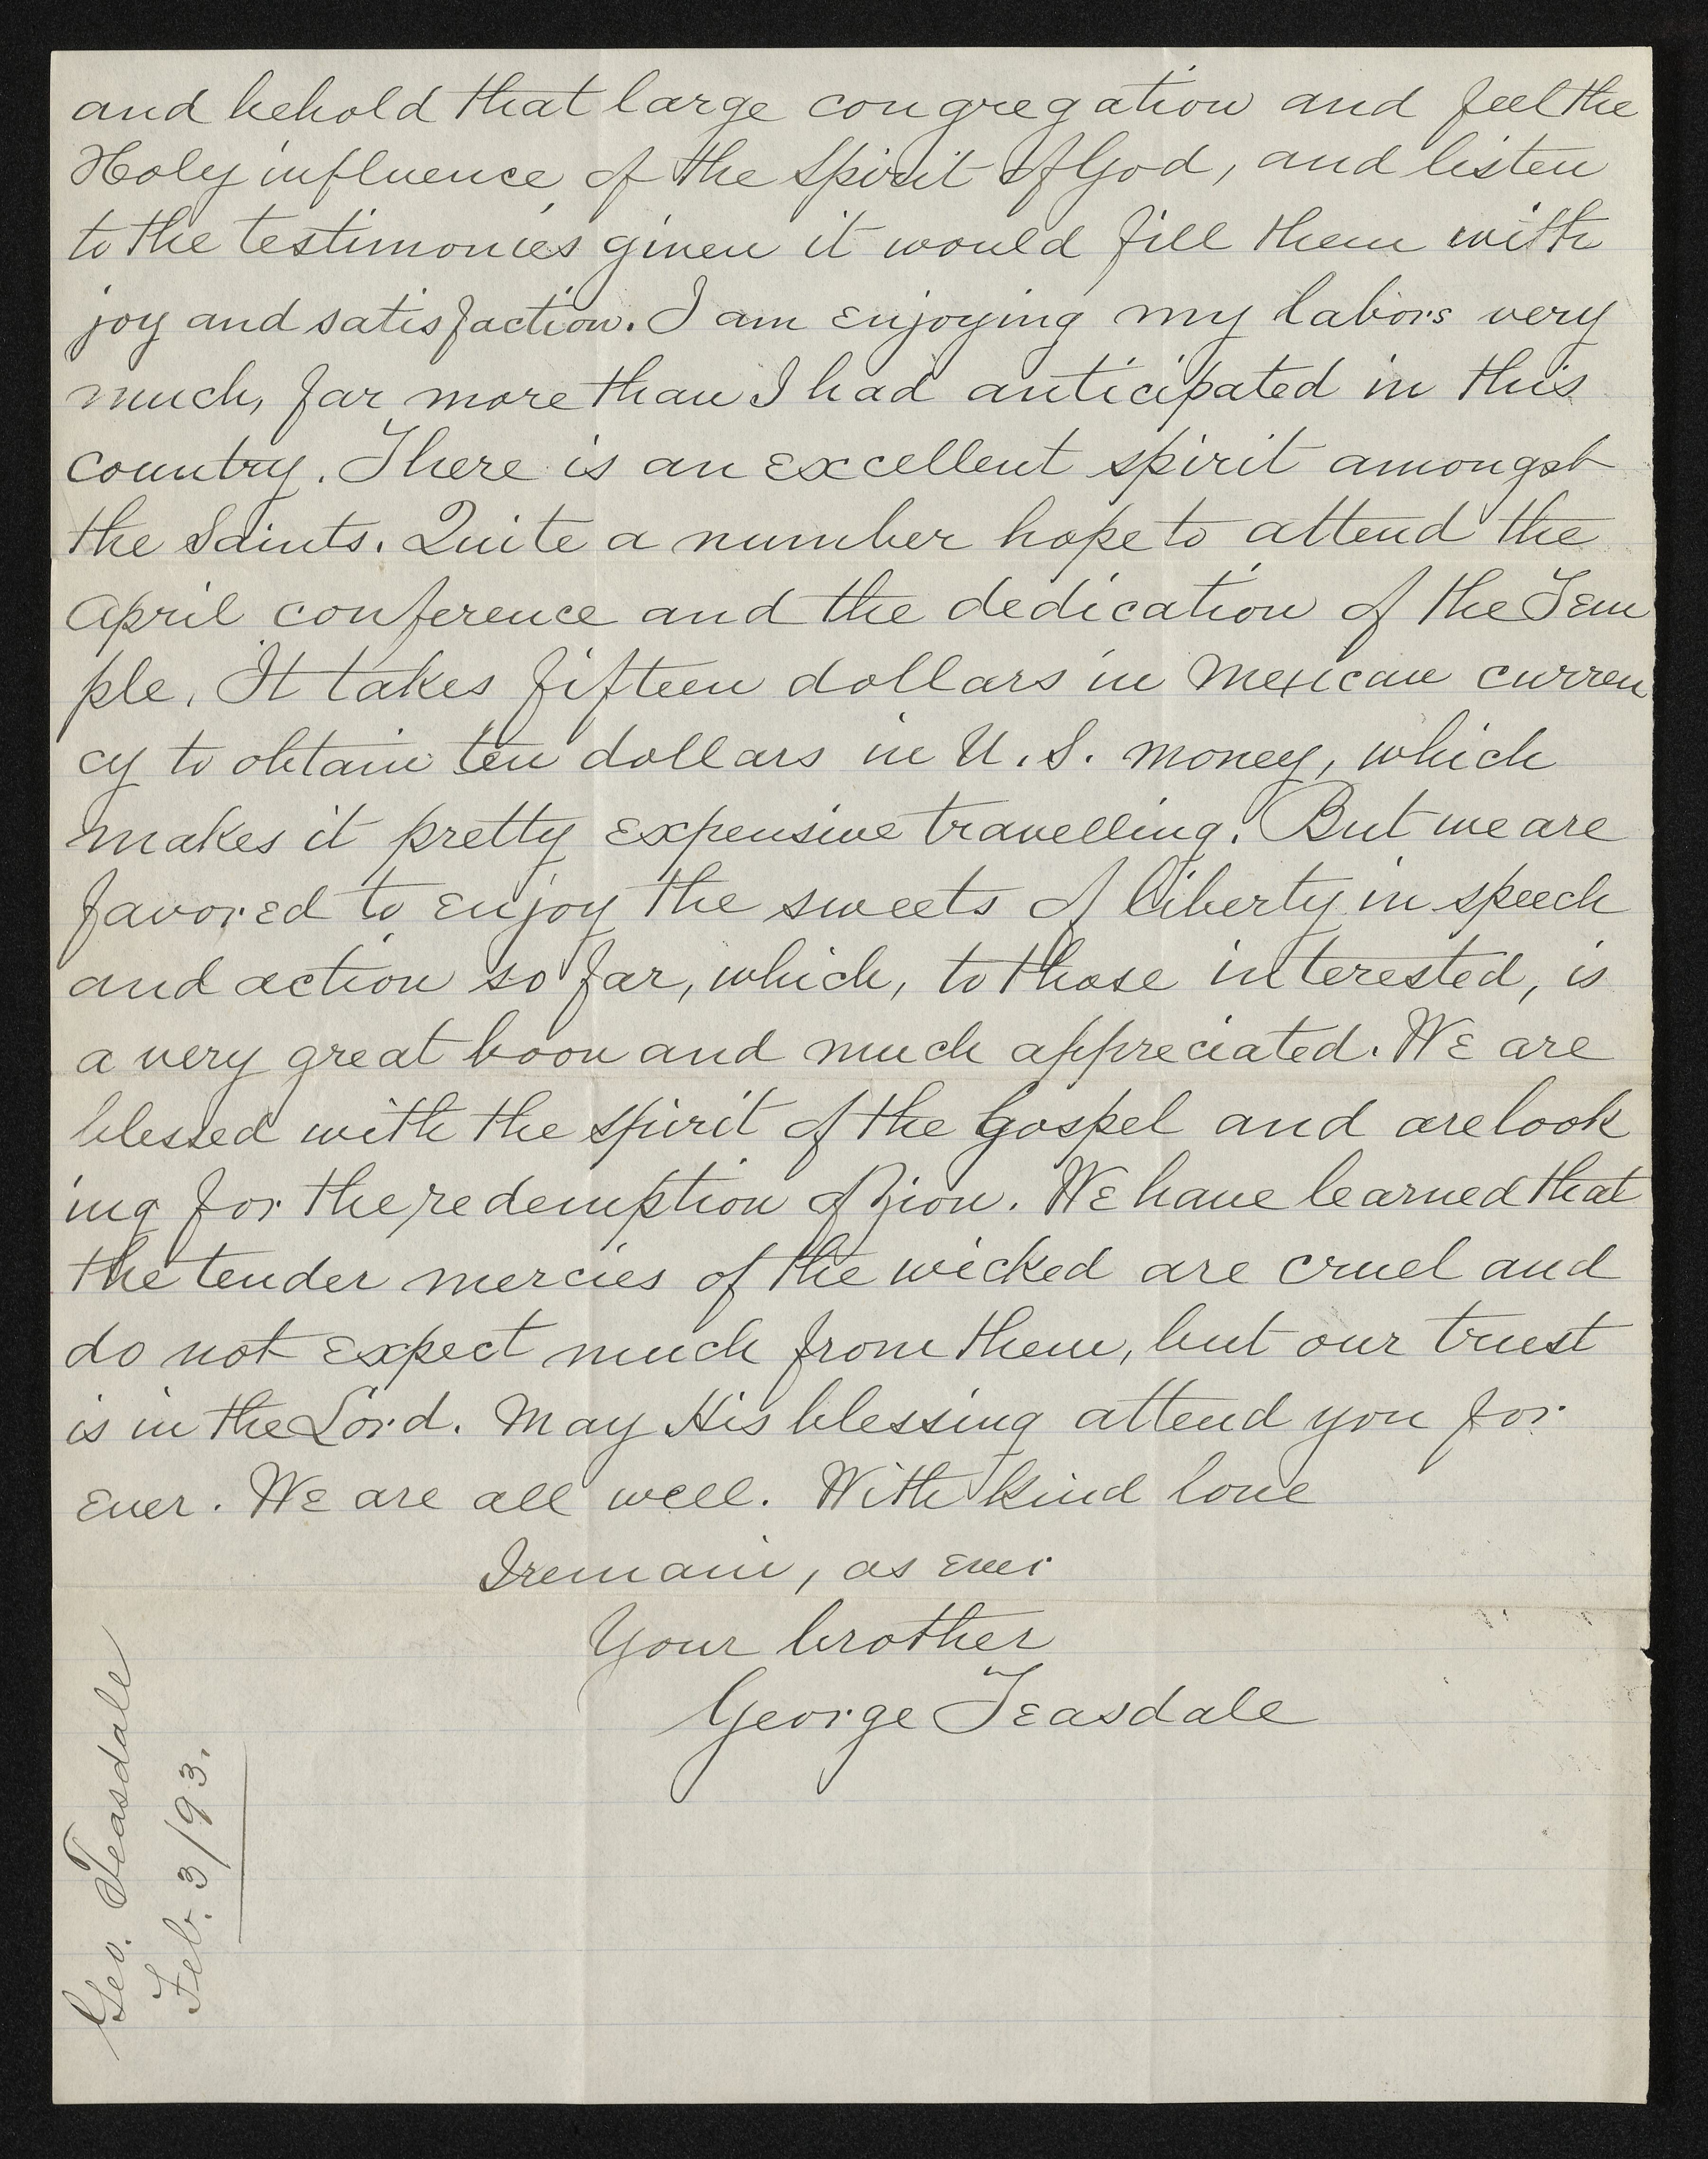 and behold that large congregation and feel the
Holy influence of the Spirit of God, and listen
to the testimonies given it would fill them with
joy and satisfaction. I am enjoying my labors very
much, far more than I had anticipated in this
country. There is an excellent spirit amongst
the Saints. Quite a number hope to attend the
April conference and the dedication of the Tem
ple. It takes fifteen dollars in Mexican curren
cy to obtain ten dollars in U.S. money, which
makes it pretty expensive travelling. But we are
favored to enjoy the sweets of liberty in speech
and action so far, which, to those interested, is
a very great boon and much appreciated. We are
blessed with the spirit of the Gospel and are look
ing for the redemption of Zion. We have learned that
the tender mercies of the wicked are cruel and
do not expect much from them, but our trust
is in the Lord. May His blessing attend you for
ever. We are all well. With kind love
I remain, as ever
Your brother
George Teasdale
Geo. Teasdale
Feb. 3/93.